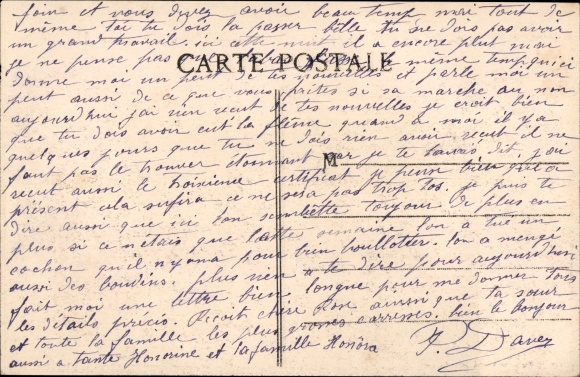 foin et vous devez avoir beau temps moi tout de
même toi tu dois la passer belle tu ne dois pas avoir
un grand travail. ici cette nuit il a encore plut mai
je ne pense pas même temp qu'ici
CARTE POSTALE
donne moi un peut de tes nouvelles et parle moi un
peut aussi de ce que vous faites si sa marche ou non
aujourd'hui j'ai rien recut de tes nouvelles je croit bien
que tu dois avoir eut la flème quand a moi il y a
quelques jours que tu ne dois rien avoir recut il ne
faut pas le trouver étonnant car je te l'avais dit j'ai
M
recut aussi le troisième certificat je pense bien qu'à
présent cela sufira ce ne sera pas trop tos. je puis te
dire aussi que ici l'on se toujour de plus en
plus si ce n'étais que cette semaine l'on a tué un
cochon qu'il n'y on a pour bien boullotter. l'on a mangé
aussi des boudins. plus rien a te dire pour aujourd'hui
fait moi une lettre bien longue pour me donner tous
les détails précis. Reçoit chère ainsi que ta sœur
et toute la famille les plus grosses carresses. bien le bonjour
aussi a tante Honorine et la famille Honóra
F. Davez